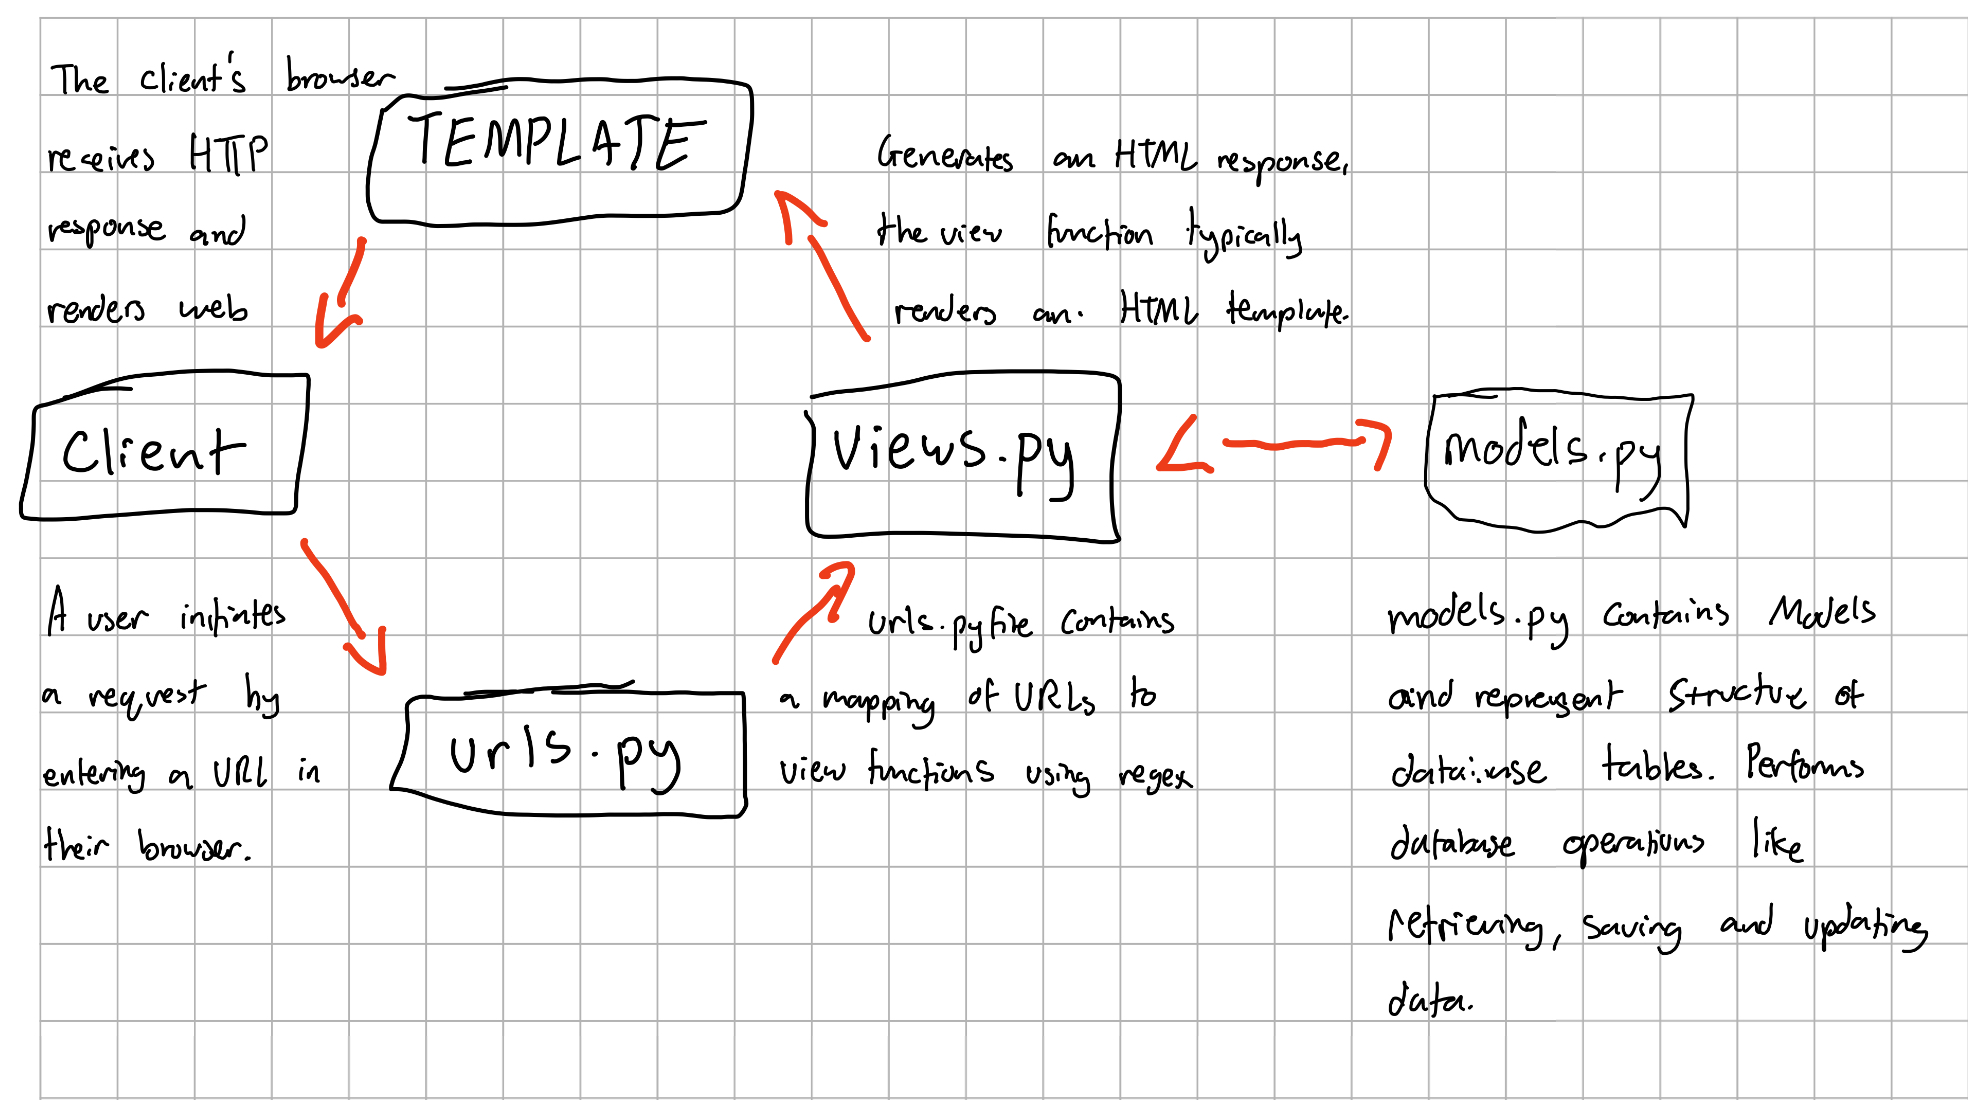 The client's browser
receives HTTP
response and
renders web
TEMPLATE
Generates an HTML response,
the view function typically
renders an. HTML template.
Client
Views.py
models.py
A user initiates
a request by
entering a URL in
their browser.
urls.py
urls.py file contains
a mapping of URLs to
view functions using regex
models.py contains Models
and represent structure of
database tables. Performs
database operations like
retrieving, saving and updating
data.